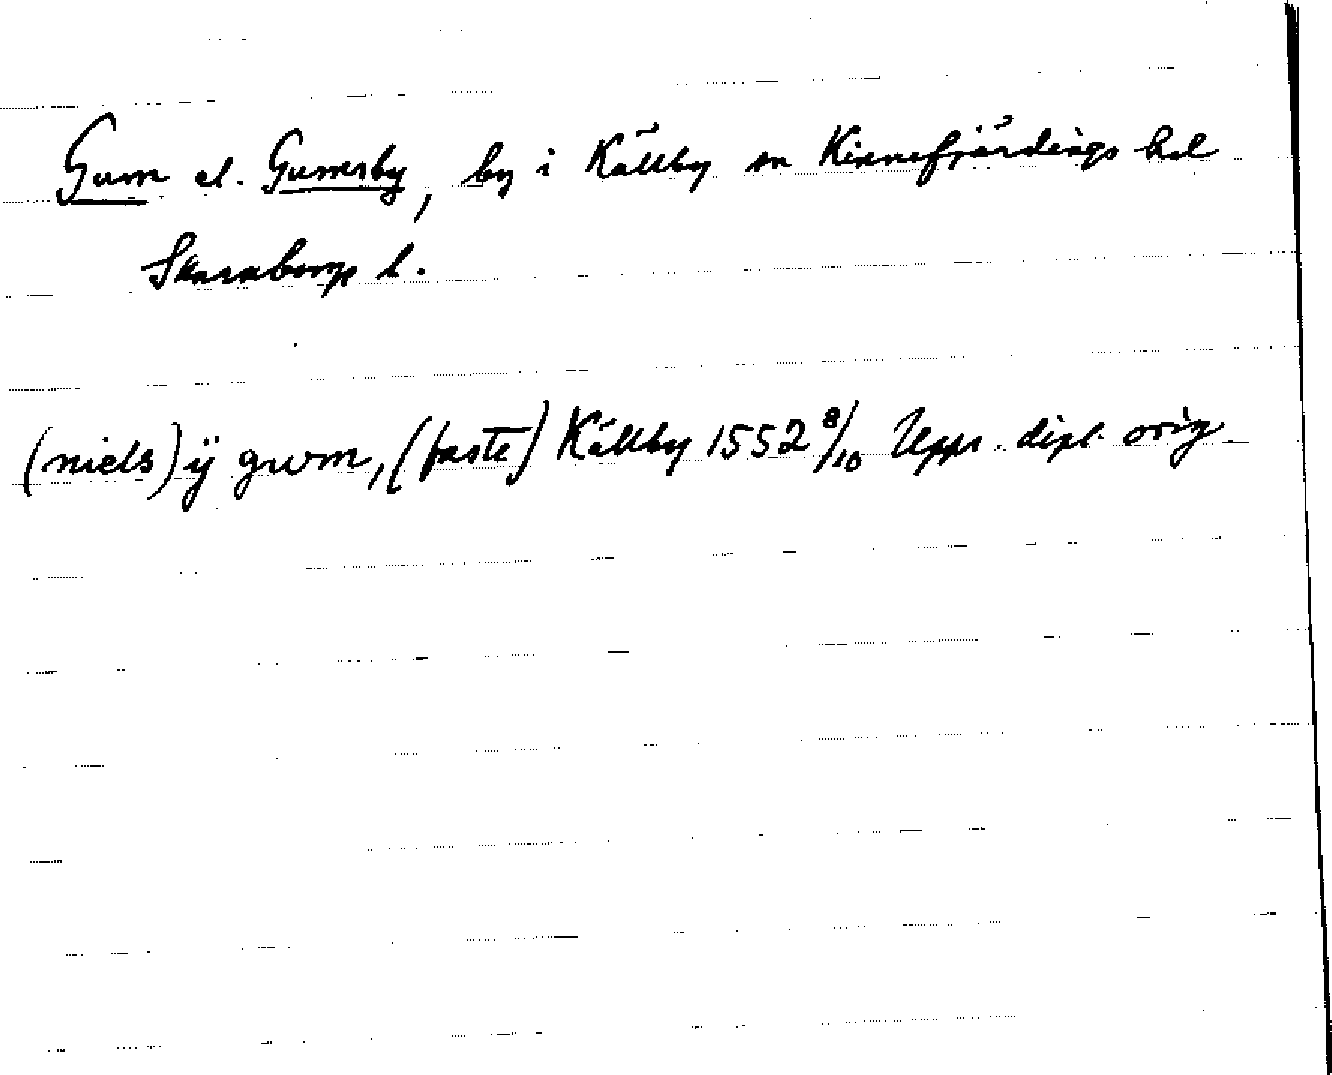 Gum el. Gumsby, by i Källby sn Kinnefjärdings hd
Skaraborgs l.
(niels) ÿ gwm, (faste) Källby 1552 8/10 Upps. dipl. orig.